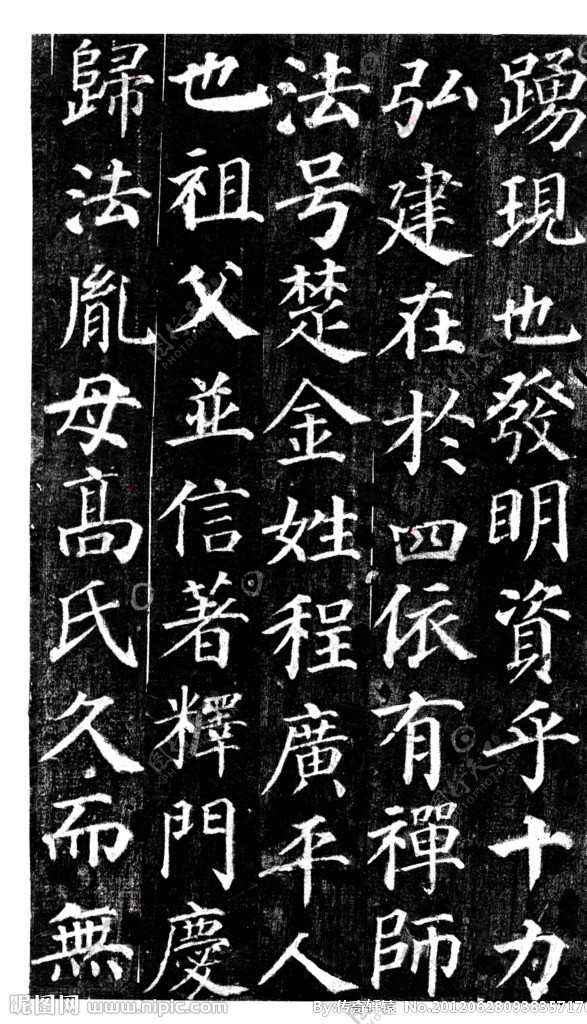 踴現也發明資乎十力
弘建在於四依有禪師
法号楚金姓程廣平人
也祖父並信著釋門慶
歸法胤母髙氏久而無
昵图网 www.nipic.com
By:传奇轩辕 No.20120628093835717